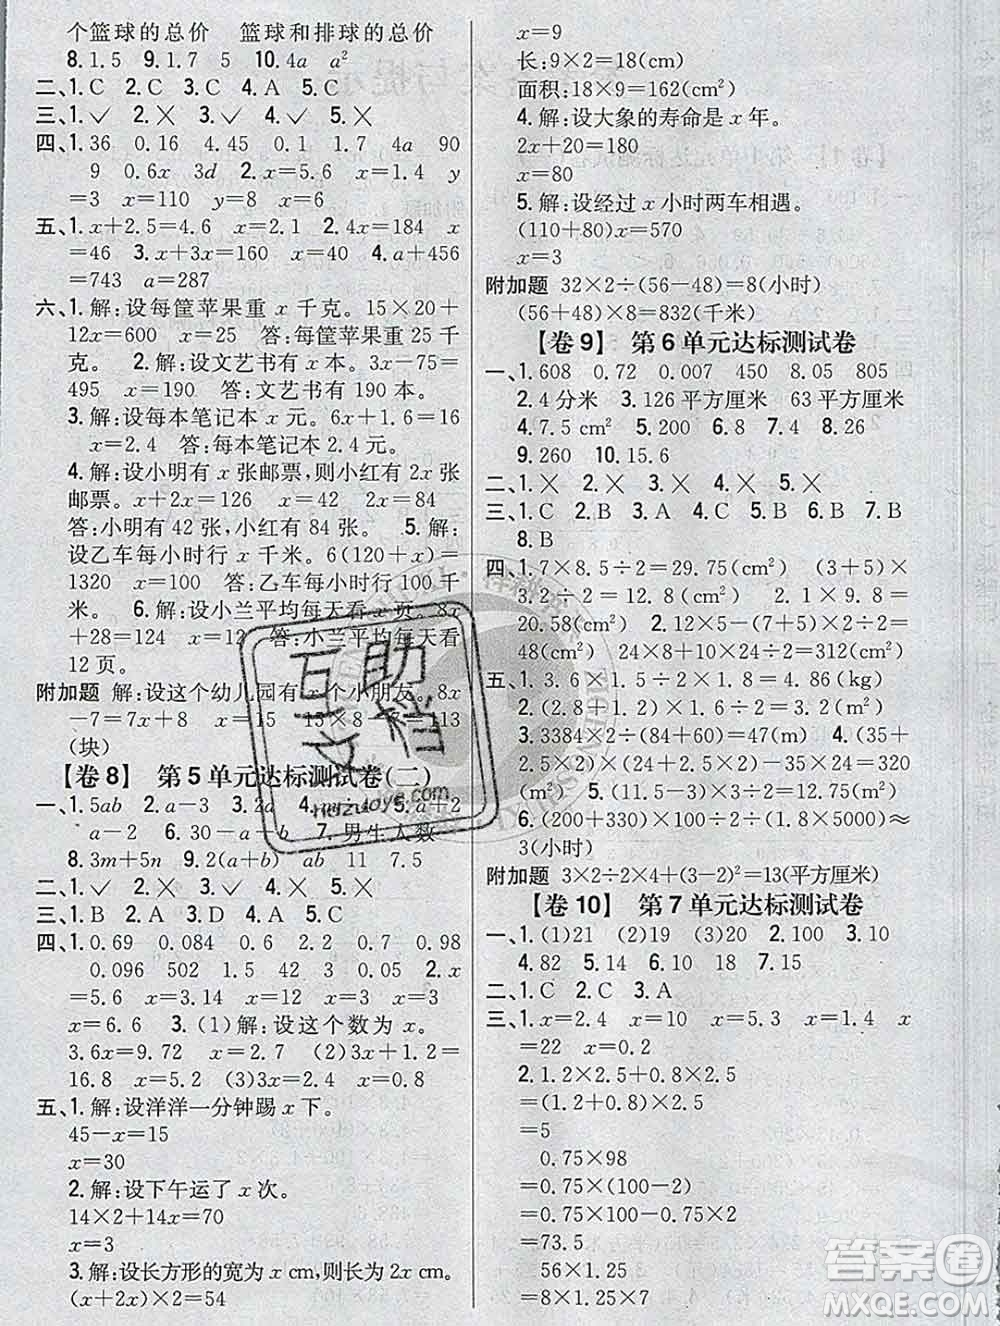 个篮球的总价　篮球和排球的总价
8.1.5　9.1.7　5　10.4a　a²
二、1.C　2.C　3.C　4.A　5.C
三、1.✓　2.×　3.✓　4.×　5.×
四、1.36　0.16　4.45　2.4　4a　90
9　0.6x　3d　2.x=5.6　x=4.9　y
=3　x=10　y=8　x=6
五、1.x+2.5=4.6　x=2.1　2.4x=184　x
=46　3.x+3x=160　x=40　4.a+456
=743　a=287
六、1.解:设每筐苹果重 x 千克。15×20+
12x=600　x=25　答:每筐苹果重 25 千
克。　2.解:设文艺书有 x 本。3x-75=
495　x=190　答:文艺书有 190 本。
3.解:设每本笔记本 x 元。6x+1.6=16
x=2.4　答:每本笔记本 2.4 元。
4.解:设小明有 x 张邮票,则小红有 2x 张
邮票。x+2x=126　x=42　2x=84
答:小明有 42 张,小红有 84 张。　5.解:
设乙车每小时行 x 千米。6(120+x)=
1320　x=100　答:乙车每小时行 100 千
米。　6.解:设小兰平均每天看 x 页。8x
+28=124　x=12　答:小兰平均每天看
12 页。
附加题　解:设这个幼儿园有 x 个小朋友。8x
-7=7x+8　x=15　15×8-7=113
(块)
【卷 8】　第 5 单元达标测试卷(二)
一、1.5ab　2.a-3　3.2a　4.　5.a+2
a-2　6.30-a+b　7.男生人数
8.3m+5n　9.2(a+b)　ab　11　7.5
二、1.✓　2.×　3.✓　4.×　5.×
三、1.B　2.A　3.D　4.A　5.C
四、1.0.69　0.084　0.6　2.4　0.7　0.98
0.096　502　1.5　24　0.51　0.05　2.x
=5.6　x=5　x=12　x=3　x=3
x=6.6　3.(1)解:设这个数为 x。
3.6x=9.72　x=2.7　(2)3x+1.2=
16.8　x=5.2　(3)3x=24　x=8
五、1.解:设洋洋一分钟踢 x 下。
45-x=15
x=30
2.解:设下午运了 x 次。
14×2+14x=70
x=3
3.解:设长方形的宽为 x cm,则长为 2x cm。
(x+2x)×2=54
x=9
长:9×2=18(cm)
面积:18×9=162(cm²)
4.解:设大象的寿命是 x 年。
2x+20=180
x=80
5.解:设经过 x 小时两车相遇。
(110+80)x=570
x=3
附加题　32×2÷(56-48)=8(小时)
(56+48)×8=832(千米)
【卷 9】　第 6 单元达标测试卷
一、1.608　0.72　0.007　450　8.05　805
2.4 分米　3.126 平方厘米　63 平方厘米
4.7.5 cm²　5.200　6.8　7.4　8.26
9.260　10.15.6
二、1.×　2.×　3.✓　4.×　5.×
三、1.C　2.B　3.A　4.C　5.B　6.B　7.B
8.B
四、1.7×8.5÷2=29.75(cm²)　(3+5)×
3.2÷2=12.8(cm²)　2.1×9.8=
20.58(cm²)　2.12×5-(7+5)×2÷2=
48(cm²)　24×8+24×10÷2=312(cm²)
五、1.3.6×1.5÷2×1.8=4.86(kg)
2.(2.8+1.2)×1.6÷2=3.2(m²)
3.3384×2÷72=94(m)　4.(3.5+
2.5)×2÷2×20=120(元)　5.(4.4+
11.6)×1.5÷2=12(m²)
6.(200+120)×90÷2÷(1.8×5000)≈
3(小时)
附加题　3×2÷2×4+(3-2)²=13(平方厘米)
【卷 10】　第 7 单元达标测试卷
一、1.(1)21　(2)19　(3)20　2.100　3.10
4.82　5.14　6.18　7.15
二、1.C　2.C　3.A
三、1.x=2.4　x=10　x=5.3　x=1.4　x
=22　x=0.2
2.1.2×2.5+0.8×2.5
=(1.2+0.8)×2.5
=5
0.75×98
=0.75×(100-2)
=0.75×100-0.75×2
=73.5
56×1.25
=8×1.25×7
互助
文档
Huzuoye.com
答案圈
MXQE.COM